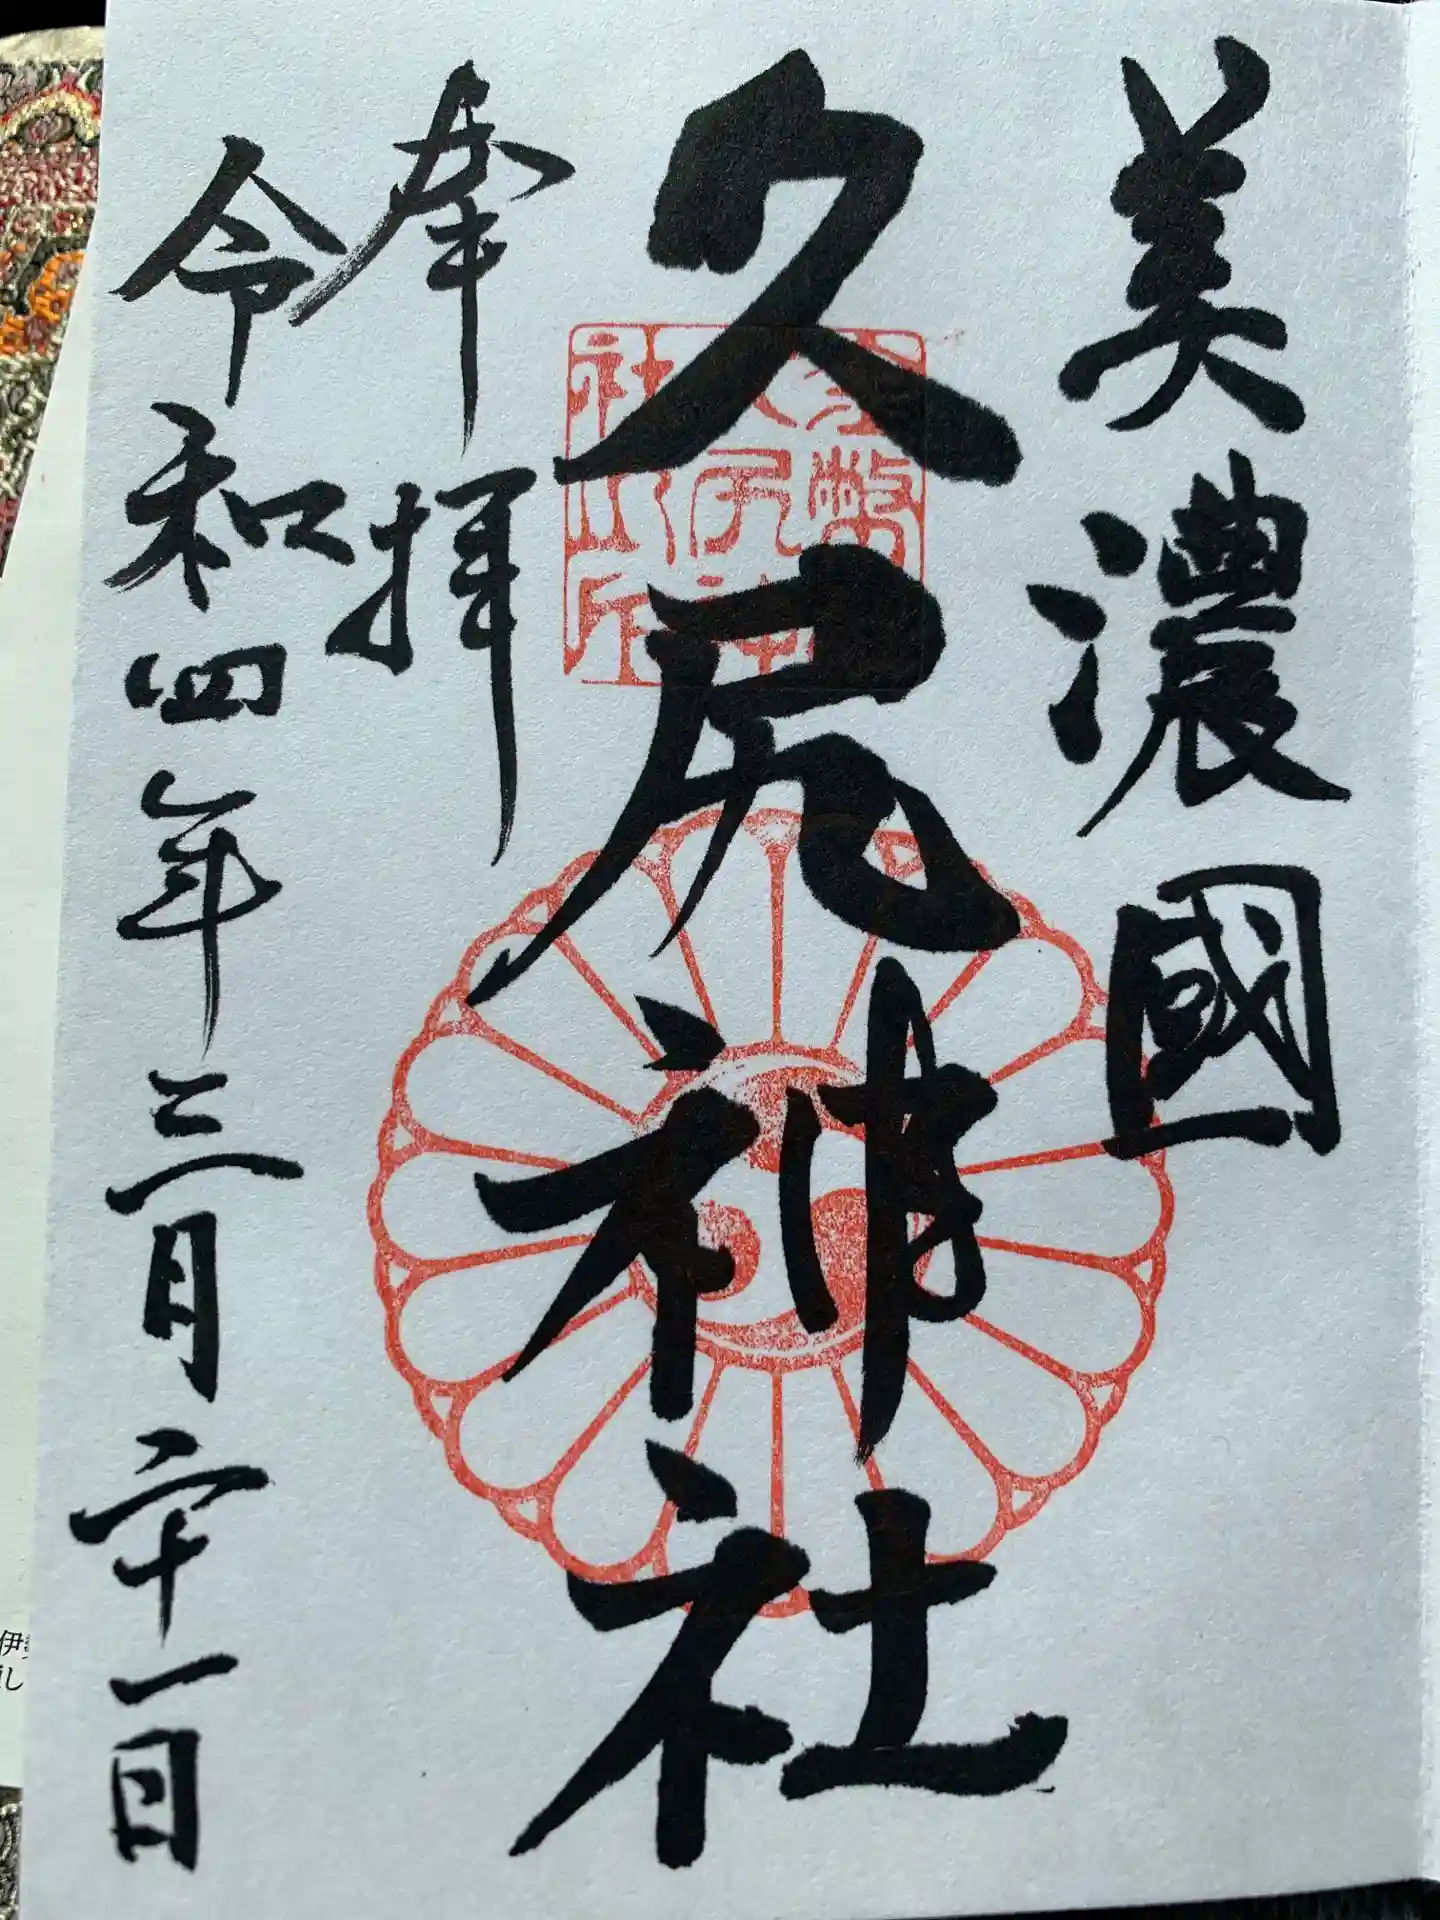 美濃國
久尻神社
奉拝
令和四年三月二十一日
伊
し